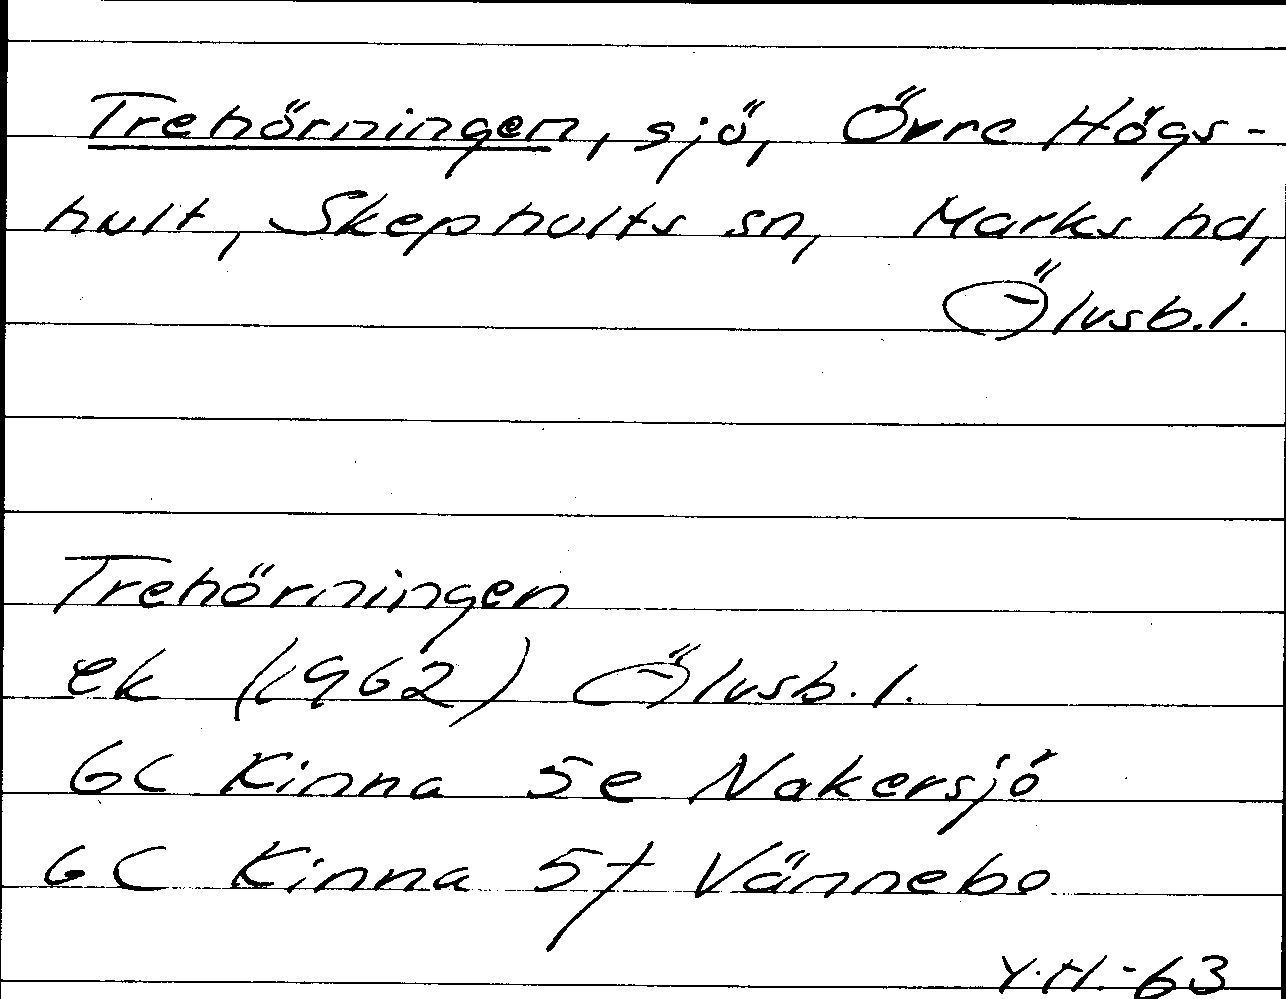 Trehörningen, sjö, Övre Högs-
hult, Skephults sn, Marks hd,
Älvsb.l.
Trehörningen
ek (1962) Älvsb.l.
6C Kinna 5e Nakersjö
6C Kinna 5f Vännebo
Y.H.-63